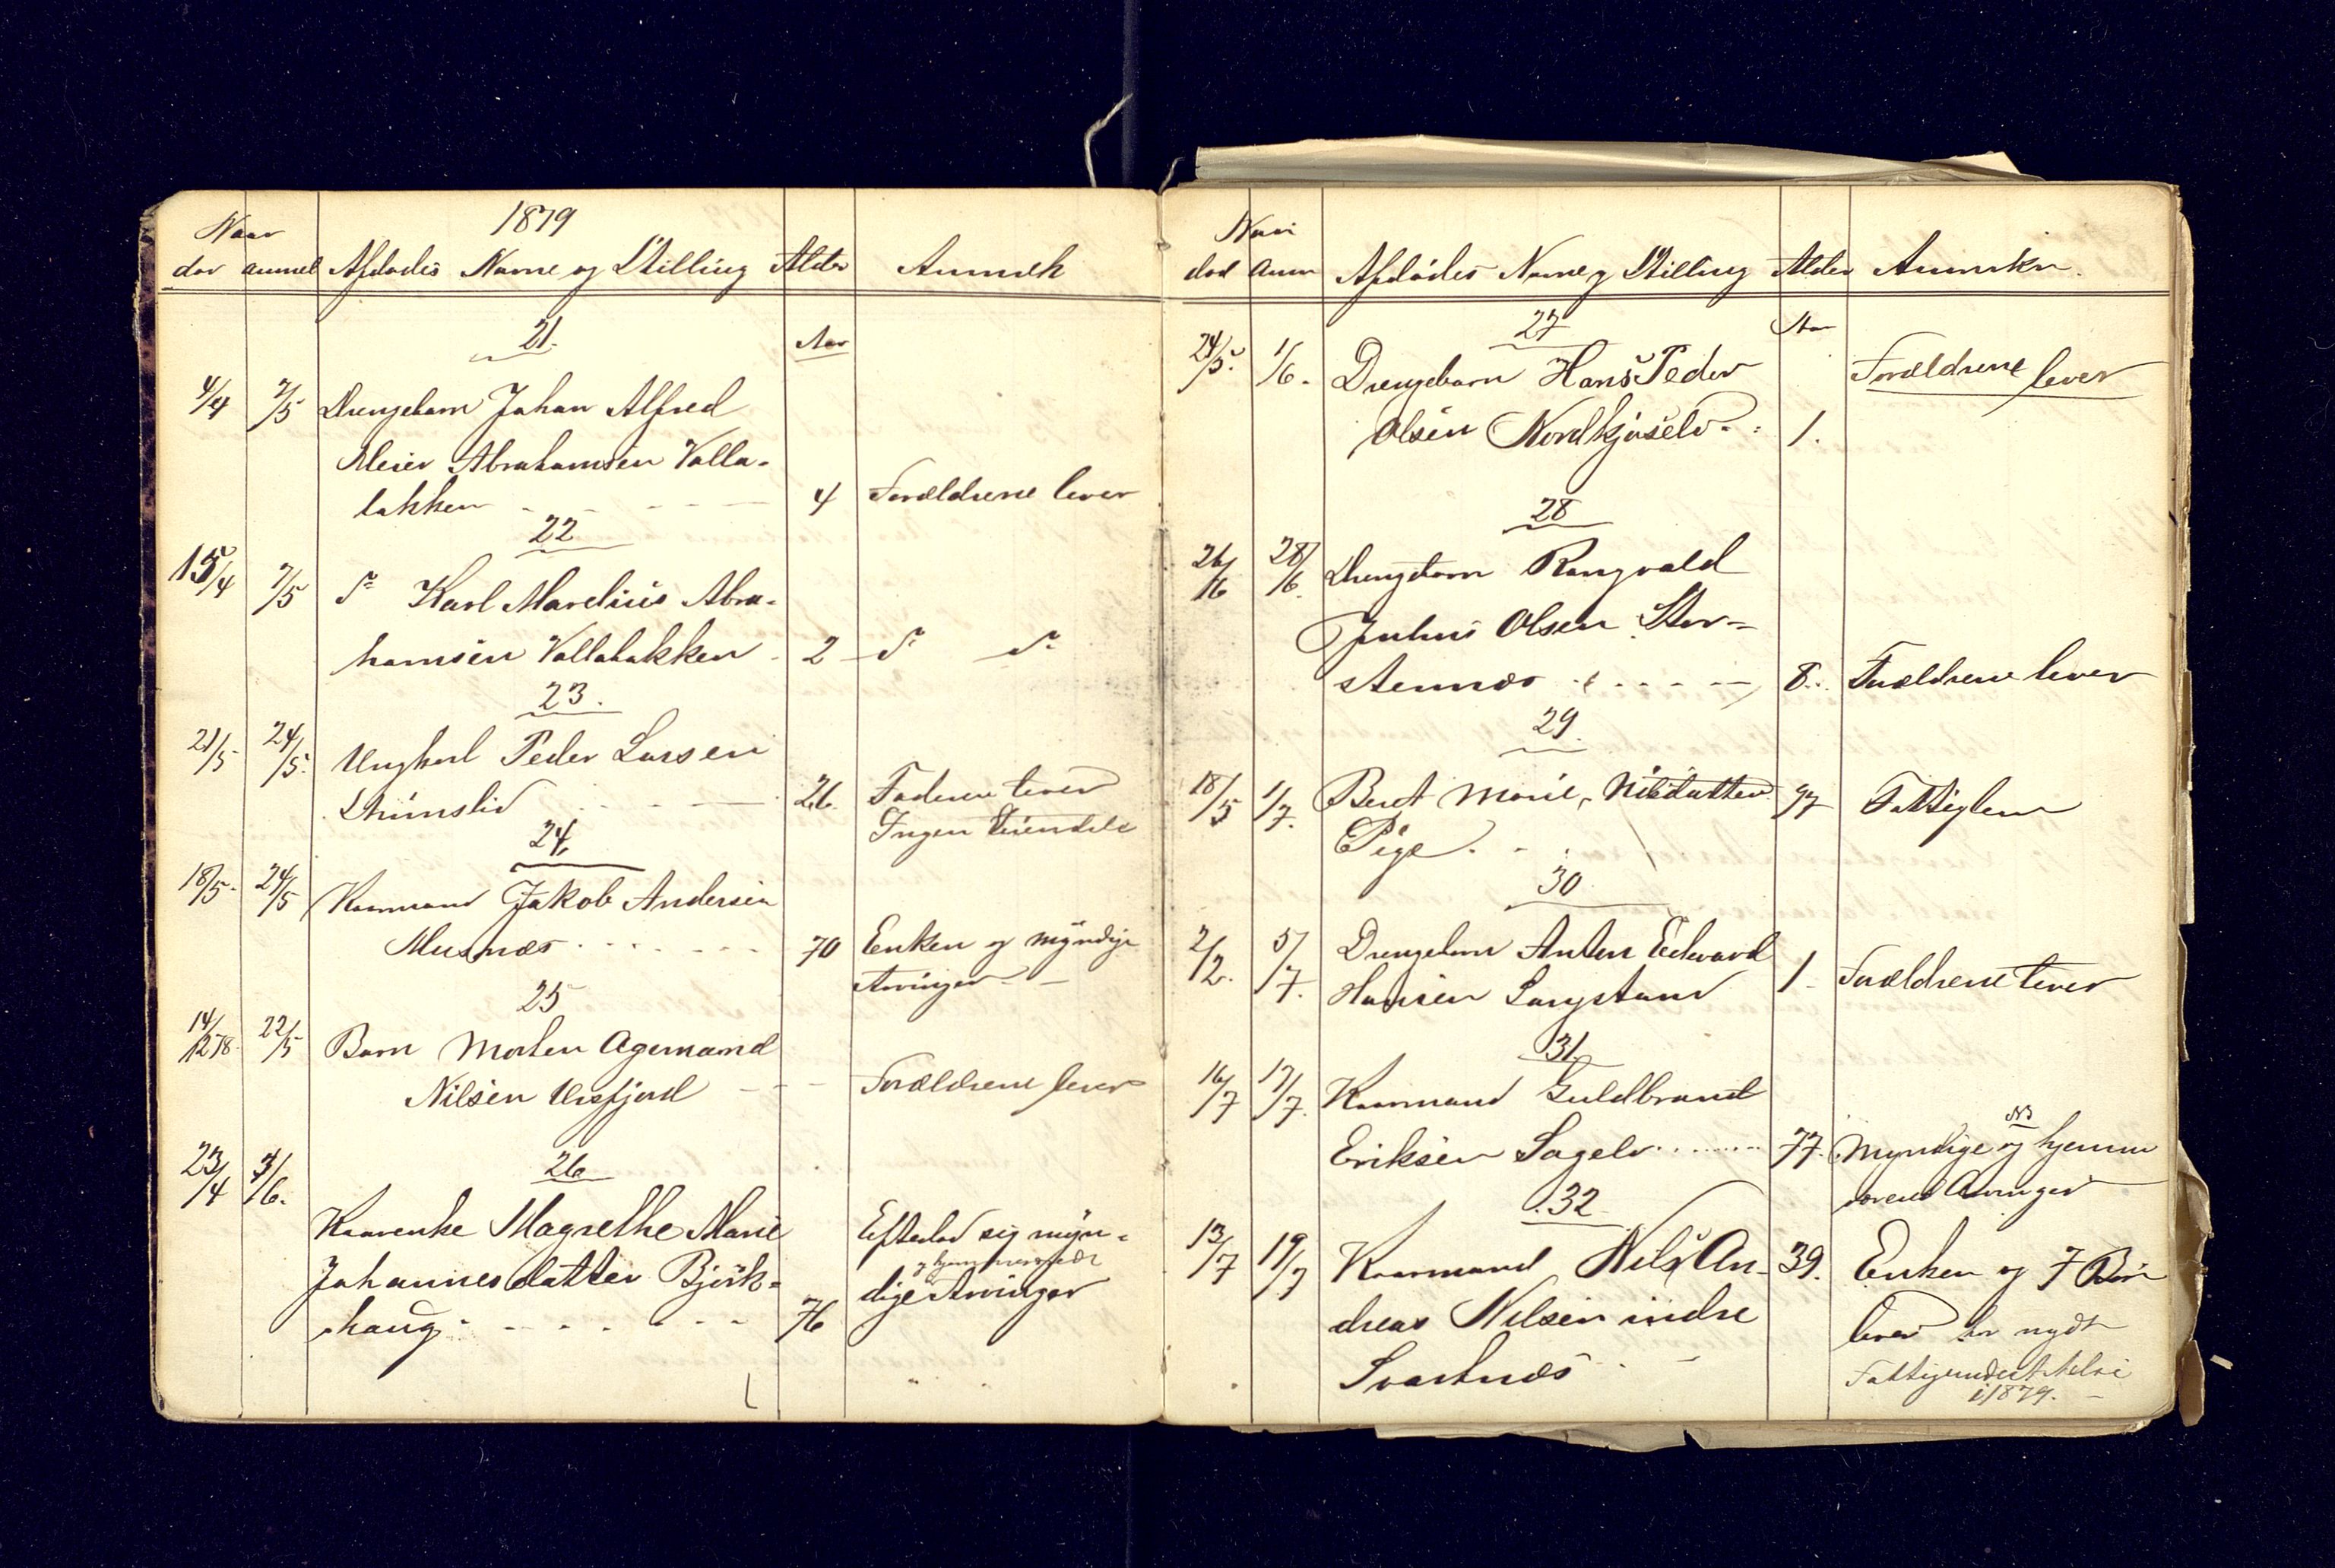 1879
Naar
dør anmel Afdødes Navne og Stilling Alder Anmerk
21.
Aar
4/4 7/5 Drengebarn Johan Alfred
Meier Abrahamsen Valla-
bakken - - - - 4 Forældrene lever
22
15/4 7/5 do Karl Marelius Abra-
hamsen Vallabakken - 2 - do do
23.
21/5 24/5. Ungkarl Peder Larsen
- - - 26. Faderen lever
Ingen Eiendele
24,
18/5. 24/5 Kaarmand Jakob Andersen
Musnæs - - - - 70 Enken og myndige
Arvinger - -
25
14/12 78 22/5 Barn Morten Agemamd
Nilsen Ursfjord - - - Forældrene lever
26
23/4 3/6. Kaarenke Magrethe Marie
Johannesdatter Bjørk-
haug - - - - - - 76
Efterlod sig myn-
dige Arvinger
Naar
død Anm Afdødes Navne og Stilling Alder Anmerkn.
27
Aar
24/5. 1/6. Drengebarn Hans Peder
Olsen Nordkjoselv - 1.
Forældrene lever
28
26/6 28/6. Drengebarn Rangvald
Julius Olsen Stor-
stennæs - - - - 8. Forældrene lever
29.
18/5 1/7. Beret Marie, Nilsdatter 97 Fattiglem
Pige. - .
30
2/2. 5/7. Drengebarn Anton Edvard
Hansen Langstand 1 - Forældrene lever
31
16/7 17/7. Kaarmand Guldbrand
Eriksen Sagelv ........ 77. Myndige og hjemme
værende Arvinger
32
13/7 19/7 Kaarmand Nils An- 39. Enken og 7 Børn
dreas Nilsen indre lever har nydt
Svartnæs - Fattigunderstøttelse
i 1879. -